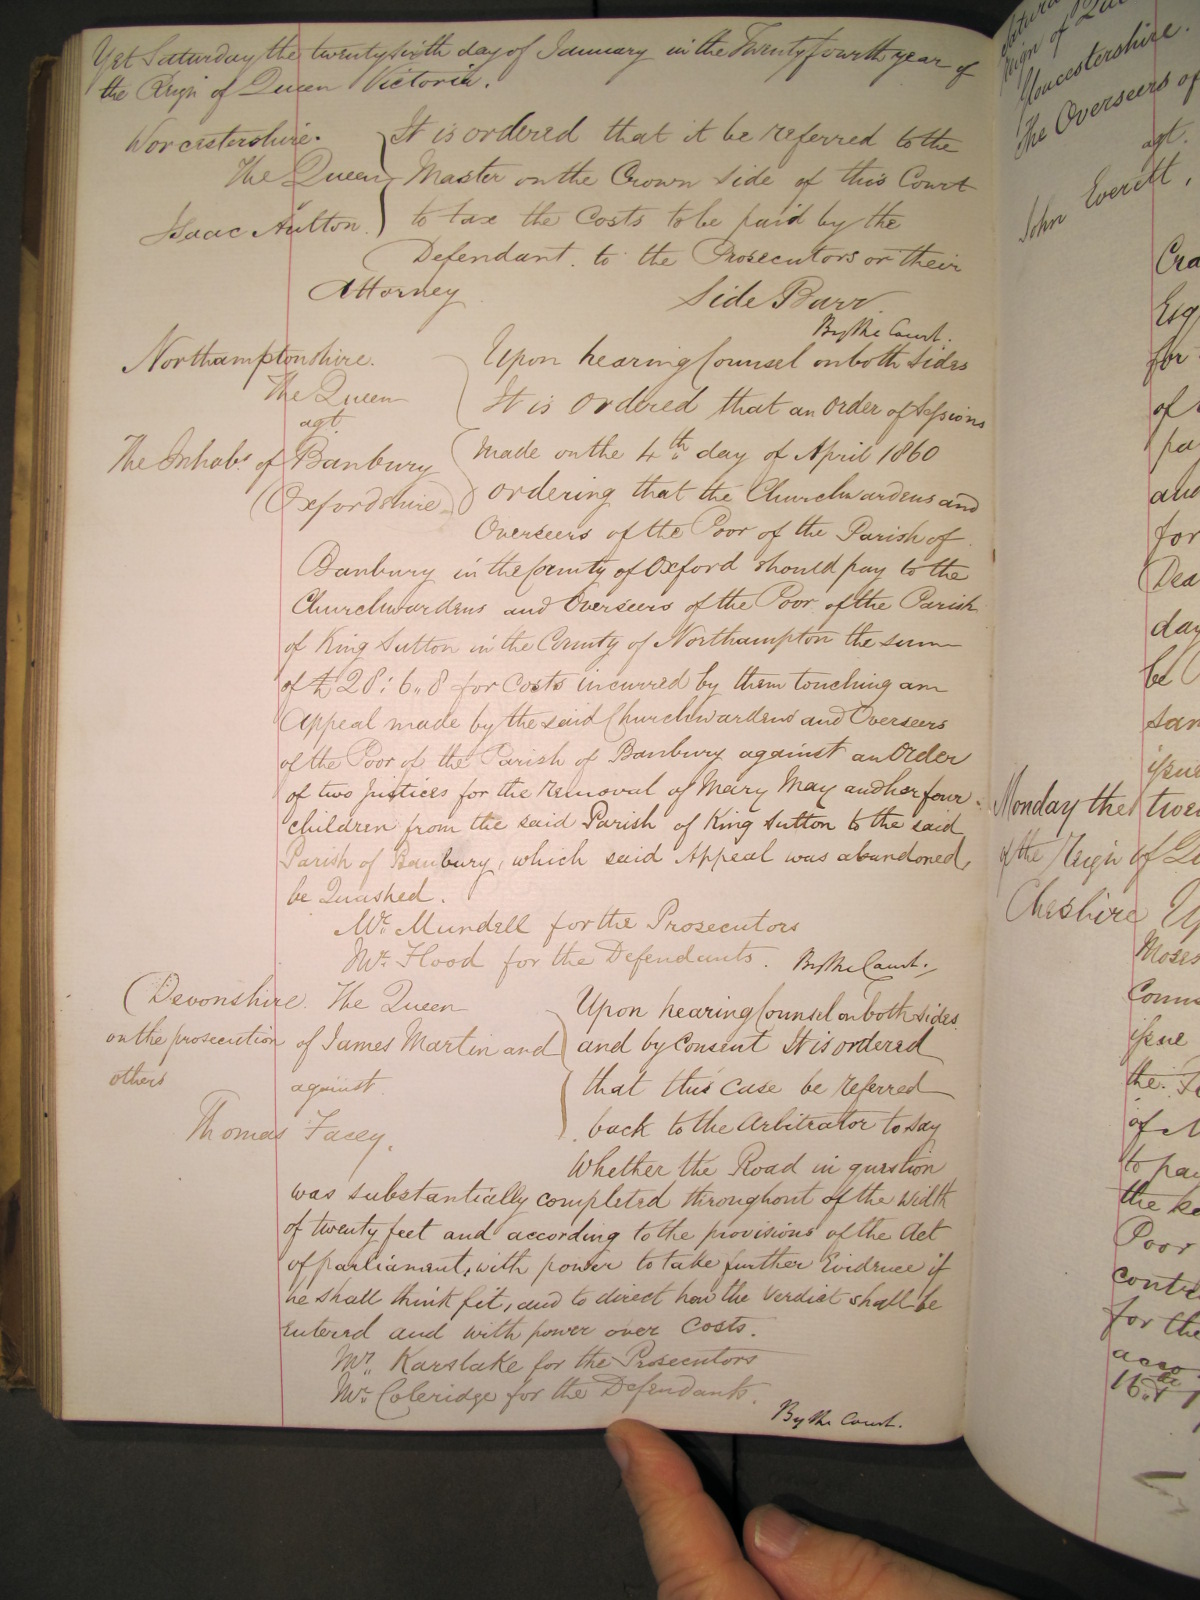 Yet Saturday the twentysixth day of January in the Twenty fourth year of
the Reign of Queen Victoria.
Worcestershire.
The Queen
agt
Isaac Aulton.
It is ordered that it be referred to the
Master on the Crown Side of this Court
to tax the Costs to be paid by the
Defendant to the Prosecutors or their
Attorney
Side Barr
By the Court.
Northamptonshire.
The Queen
agt.
The Inhabs. of Banbury
(Oxfordshire)
Upon hearing Counsel on both sides
It is ordered that an order of Sessions
made on the 4th day of April 1860
ordering that the Churchwardens and
Overseers of the Poor of the Parish of
Banbury in the County of Oxford should pay to the
Churchwardens and Overseers of the Poor of the Parish
of King Sutton in the County of Northampton the sum
of £28:6..8 for Costs incurred by them touching an
Appeal made by the said Churchwardens and Overseers
of the Poor of the Parish of Banbury against an Order
of two Justices for the removal of Mary May and her four
children from the said Parish of King Sutton to the said
Parish of Banbury, which said Appeal was abandoned,
be Quashed.
Mr. Mundell for the Prosecutors
Mr. Flood for the Defendants.
By the Court.
Devonshire. The Queen
on the prosecution of James Martin and
others against
Thomas Facey.
Upon hearing Counsel on both sides
and by consent It is ordered
that this case be referred
back to the Arbitrator to say
Whether the Road in question
was substantially completed throughout of the width
of twenty feet and according to the provisions of the Act
of parliament, with power to take further Evidence if
he shall think fit, and to direct how the verdict shall be
entered and with power over Costs.
Mr. Karslake for the Prosecutors
Mr. Coleridge for the Defendants.
By the Court.
Reign of
Gloucestershire.
The Overseers of
agt.
John Everett,
Esq
for
of
pa
and
for
day
be
Monday the twen
of the Reign of
Cheshire
Moses
Couns
issue
the
of
to pay
the
Poor
contr
for the